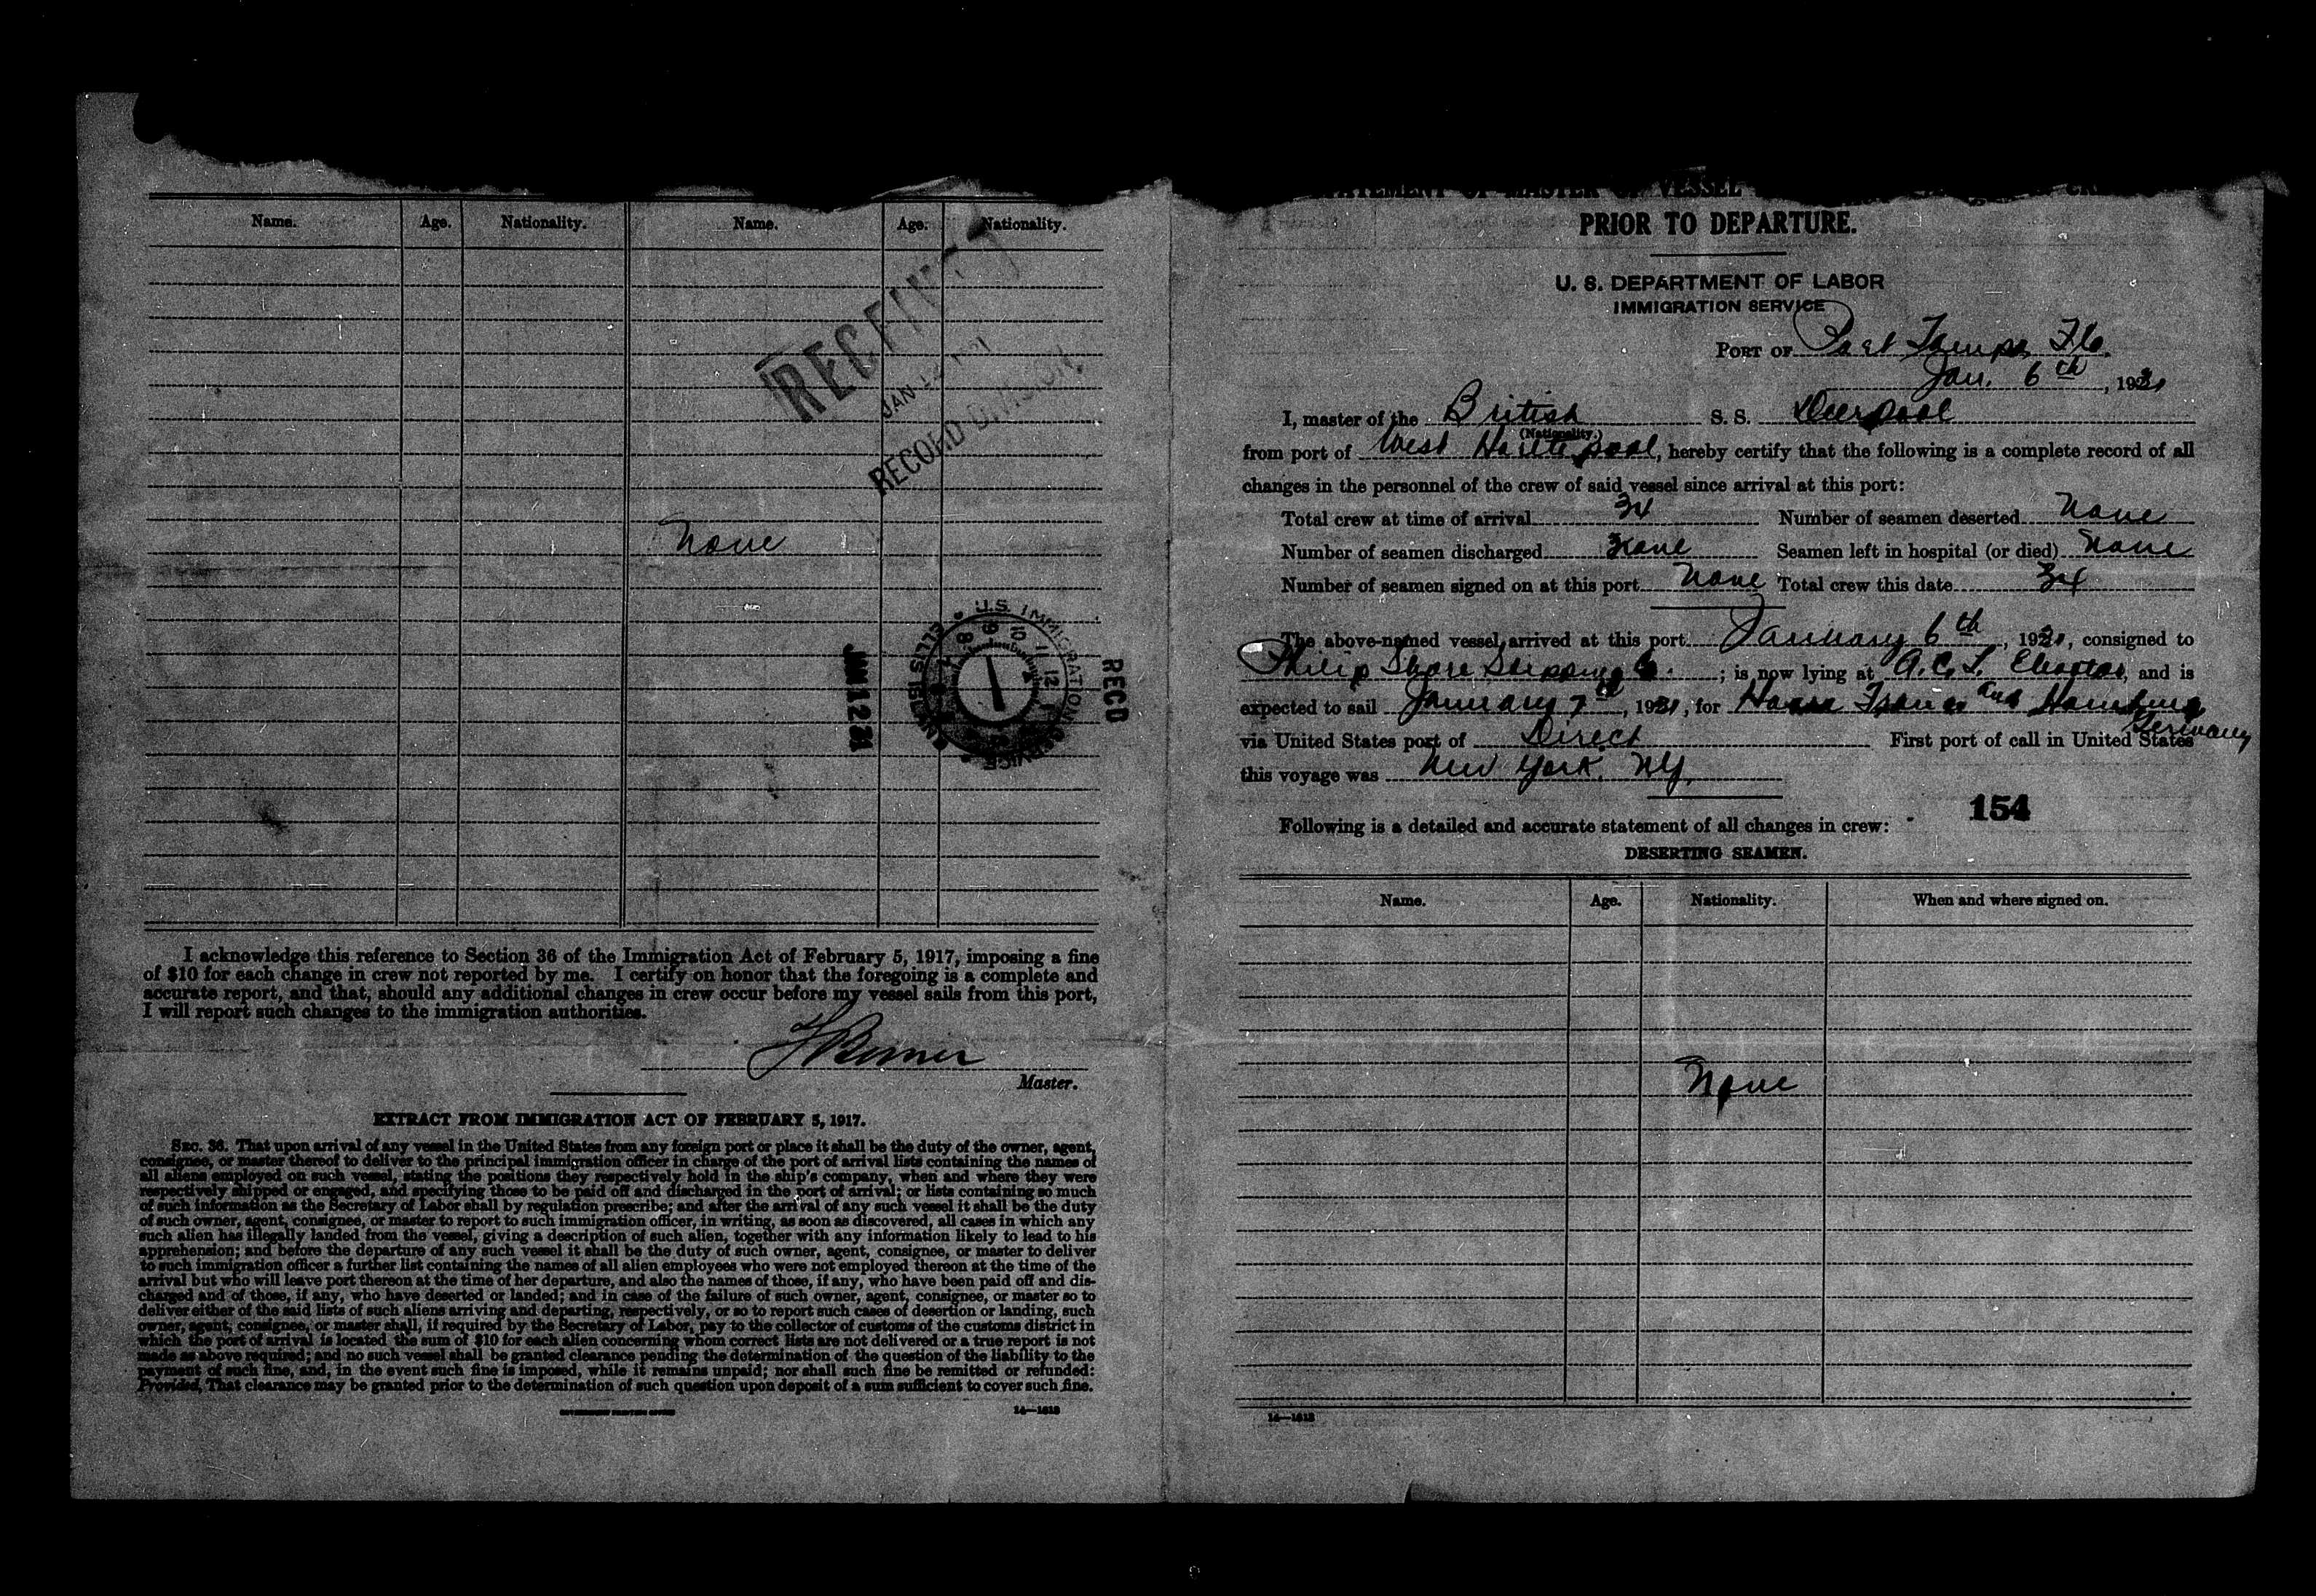 Name. Age. Nationality. Name. Age. Nationality.
RECEIVED
JAN 12
RECORD DIVISION.
None
U.S. IMMIGRATION SERVICE
ELLIS ISLAND
8 9 10 11 12
JAN 12 21
RECD
I acknowledge this reference to Section 36 of the Immigration Act of February 5, 1917, imposing a fine
of $10 for each change in crew not reported by me. I certify on honor that the foregoing is a complete and
accurate report, and that, should any additional changes in crew occur before my vessel sails from this port,
I will report such changes to the immigration authorities.
Master.
EXTRACT FROM IMMIGRATION ACT OF FEBRUARY 5, 1917.
SEC. 36. That upon arrival of any vessel in the United States from any foreign port or place it shall be the duty of the owner, agent,
consignee, or master thereof to deliver to the principal immigration officer in charge of the port of arrival lists containing the names of
all aliens employed on such vessel, stating the positions they respectively hold in the ship's company, when and where they were
respectively shipped or engaged, and specifying those to be paid off and discharged in the port of arrival; or lists containing so much
of such information as the Secretary of Labor shall by regulation prescribe; and after the arrival of any such vessel it shall be the duty
of such owner, agent, consignee, or master to report to such immigration officer, in writing, as soon as discovered, all cases in which any
such alien has illegally landed from the vessel, giving a description of such alien, together with any information likely to lead to his
apprehension; and before the departure of any such vessel it shall be the duty of such owner, agent, consignee, or master to deliver
to such immigration officer a further list containing the names of all alien employees who were not employed thereon at the time of the
arrival but who will leave port thereon at the time of her departure, and also the names of those, if any, who have been paid off and dis-
charged and of those, if any, who have deserted or landed; and in case of the failure of such owner, agent, consignee, or master so to
deliver either of the said lists of such aliens arriving and departing, respectively, or so to report such cases of desertion or landing, such
owner, agent, consignee, or master shall, if required by the Secretary of Labor, pay to the collector of customs of the customs district in
which the port of arrival is located the sum of $10 for each alien concerning whom correct lists are not delivered or a true report is not
made as above required; and no such vessel shall be granted clearance pending the determination of the question of the liability to the
payment of such fine, and, in the event such fine is imposed, while it remains unpaid; nor shall such fine be remitted or refunded:
Provided, That clearance may be granted prior to the determination of such question upon deposit of a sum sufficient to cover such fine.
GOVERNMENT PRINTING OFFICE 14—1618
STATEMENT OF MASTER OF VESSEL
PRIOR TO DEPARTURE.
U. S. DEPARTMENT OF LABOR
IMMIGRATION SERVICE
PORT OF Port Tampa, Fla.
Jan. 6th, 1921
I, master of the British S. S. Deerpool
(Nationality.)
from port of West Hartlepool, hereby certify that the following is a complete record of all
changes in the personnel of the crew of said vessel since arrival at this port:
Total crew at time of arrival 34 Number of seamen deserted None
Number of seamen discharged None Seamen left in hospital (or died) None
Number of seamen signed on at this port None Total crew this date 34
The above-named vessel arrived at this port January 6th, 1921, consigned to
Philip Shore Shipping Co.; is now lying at A.C.L. Elevator, and is
expected to sail January 7th, 1921, for Havre France and Hamburg
Germany
via United States port of Direct First port of call in United States
this voyage was New York, NY.
154
Following is a detailed and accurate statement of all changes in crew:
DESERTING SEAMEN.
Name. Age. Nationality. When and where signed on.
None
14—1618